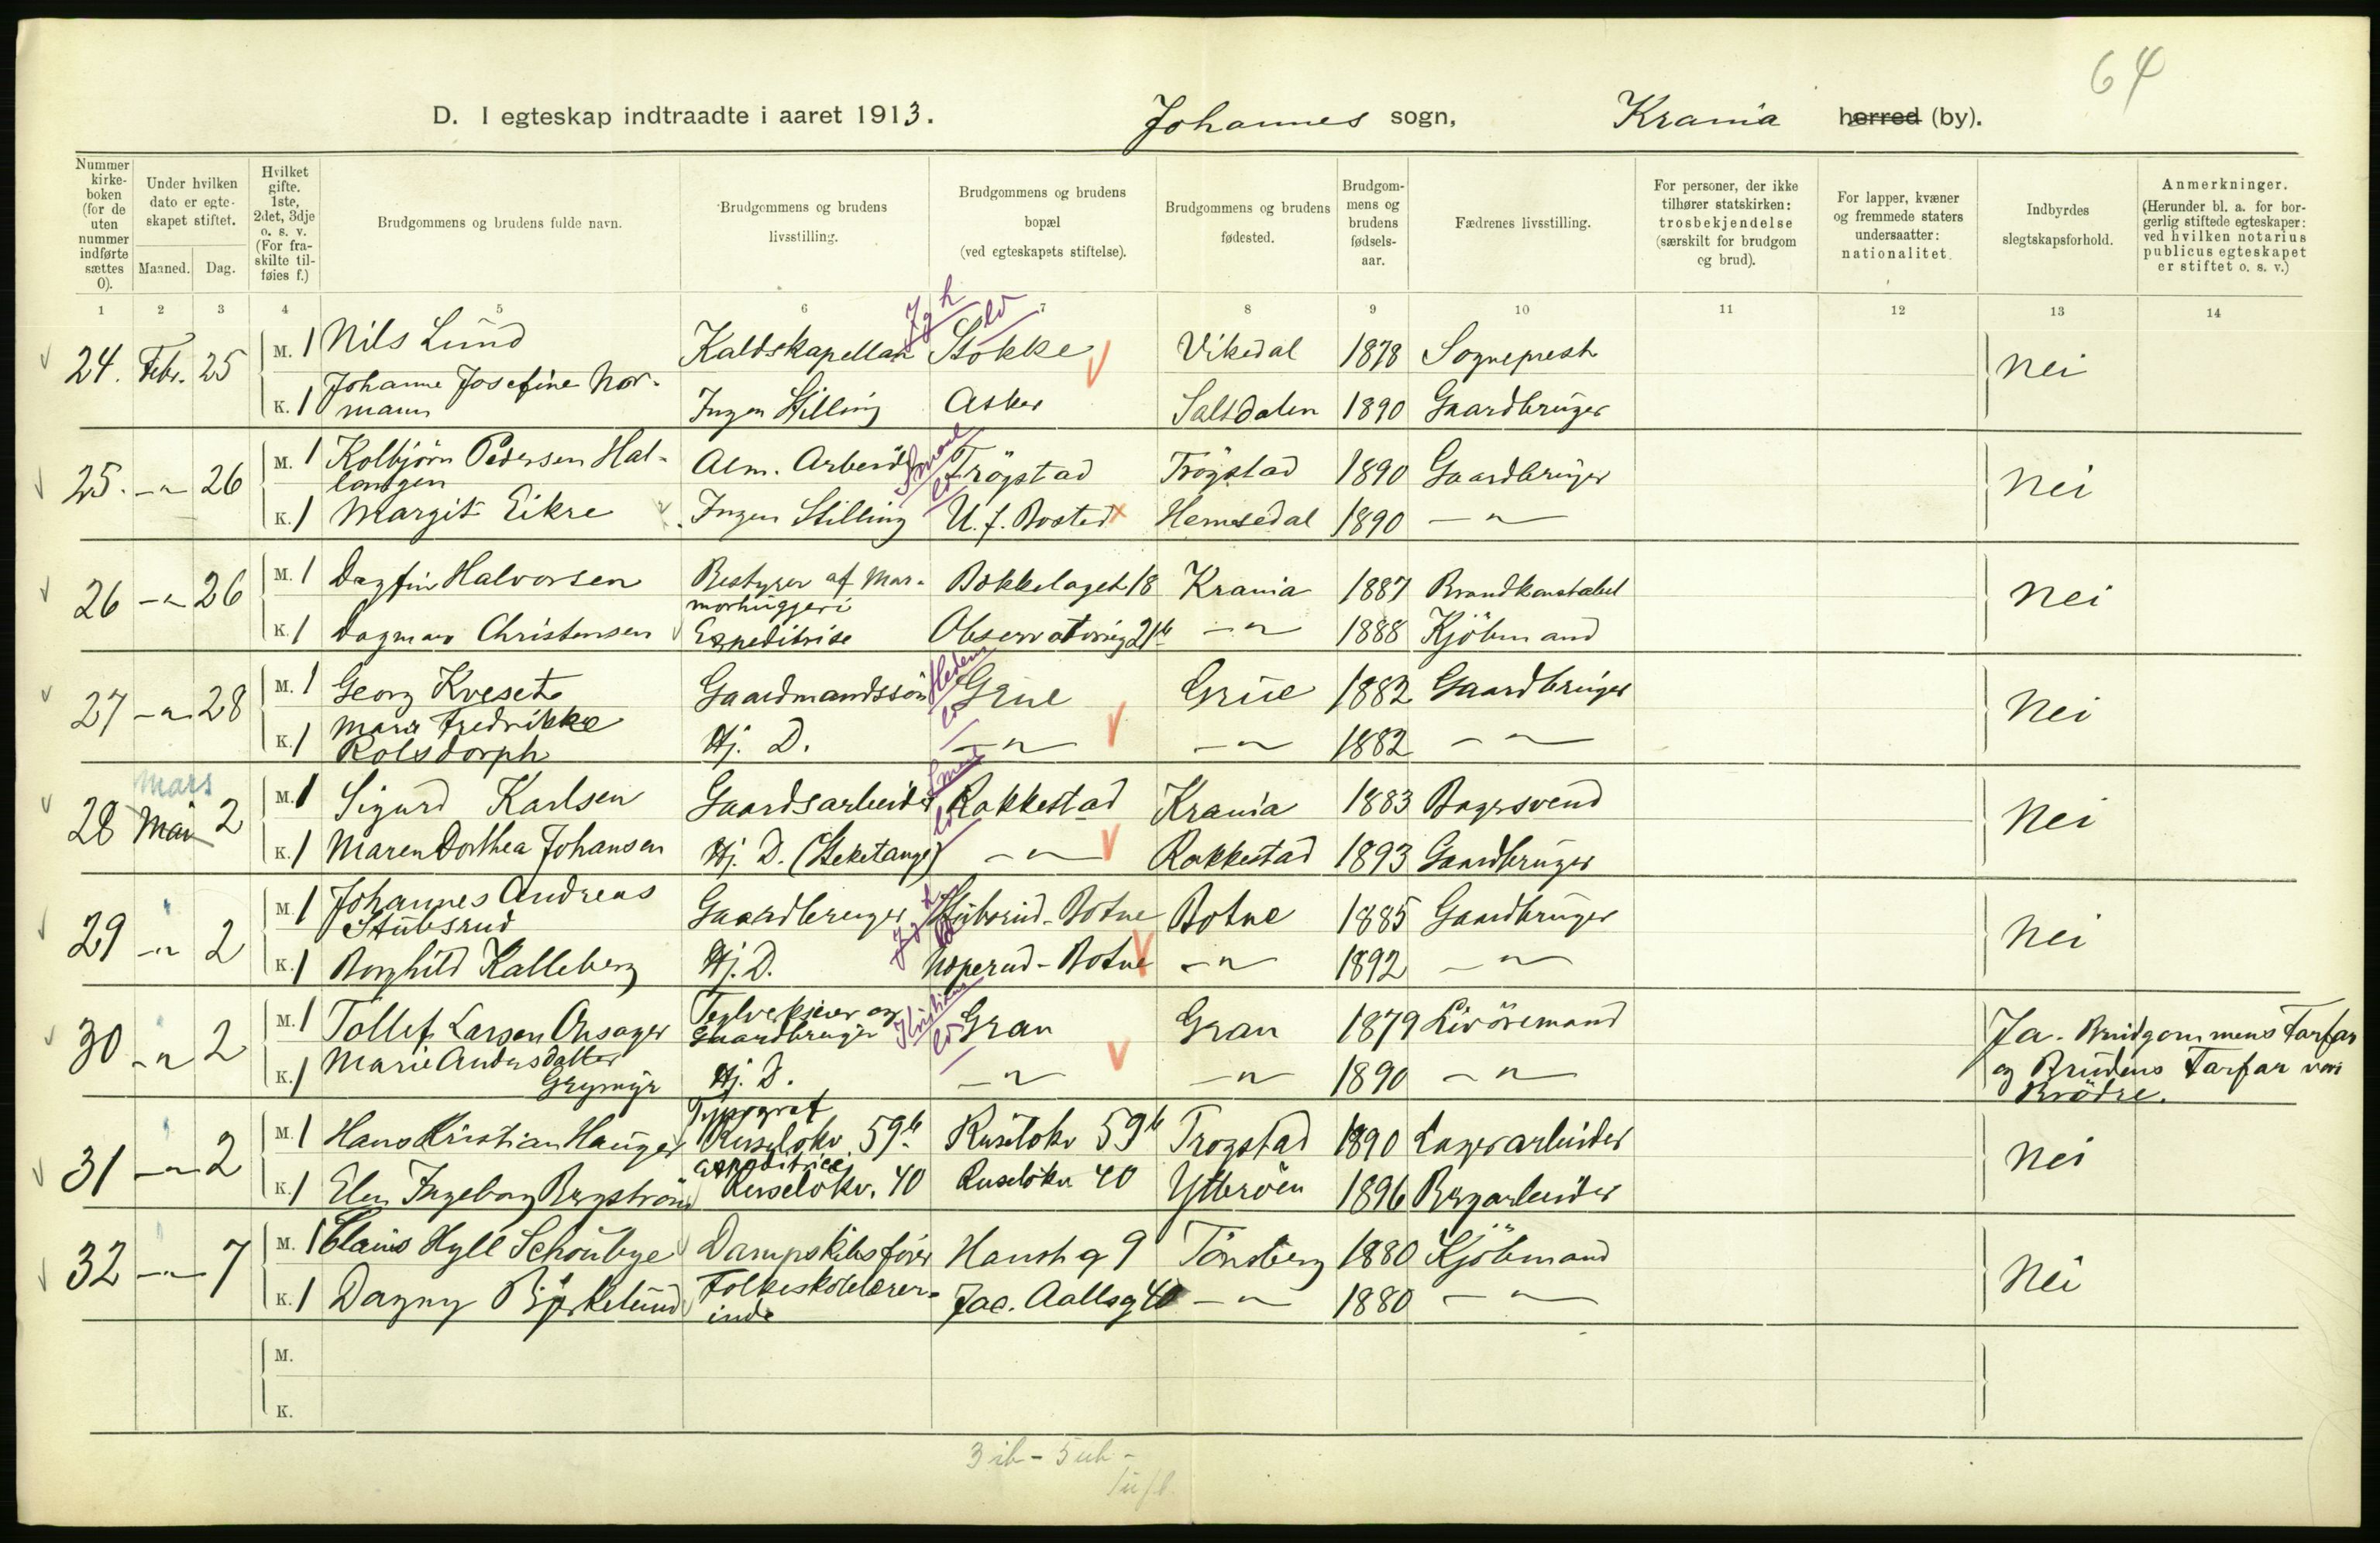 64
D. I egteskap indtraadte i aaret 1913. Johannes sogn, Krania herred (by).
Nummer kirkeboken (for de uten nummer indførte sættes 0).
Under hvilken dato er egteskapet stiftet.
Maaned. Dag.
Hvilket gifte. 1ste, 2det, 3dje o. s. v. (For fraskilte tilføies f.)
Brudgommens og brudens fulde navn.
Brudgommens og brudens livsstilling.
Brudgommens og brudens bopæl (ved egteskapets stiftelse).
Brudgommens og brudens fødested.
Brudgommens og brudens fødselsaar.
Fædrenes livsstilling.
For personer, der ikke tilhører statskirken: trosbekjendelse (særskilt for brudgom og brud).
For lapper, kvæner og fremmede staters undersaatter: nationalitet.
Indbyrdes slegtskapsforhold.
Anmerkninger. (Herunder bl. a. for borgerlig stiftede egteskaper: ved hvilken notarius publicus egteskapet er stiftet o. s. v.)
1 2 3 4 5 6 7 8 9 10 11 12 13 14
24. Febr. 25 M. 1 Nils Lund Kaldskapellan Stokke Vikedal 1878 Sogneprest Nei
K. 1 Johanne Josefine Normann Ingen Stilling Asker Saltdalen 1890 Gaardbruger
25. -"- 26 M. 1 Kolbjörn Pedersen Hallangen Alm. Arbeider Trögstad Trögstad 1890 Gaardbruger Nei
K. 1 Margit Eikre Ingen Stilling U. f. Bosted Hemsedal 1890 -"-
26 -"- 26 M. 1 Dagfin Halvorsen Bestyrer af Marmorhuggeri Bökkelaget 18 Krania 1887 Brandkonstabel Nei
K. 1 Dagmar Christensen Expeditrise Observatorieg 21b -"- 1888 Kjöbmand
27 -"- 28 M. 1 Georg Kveseth Gaardmandssön Grue Grue 1882 Gaardbruger Nei
K. 1 Marie Fredrikke Rolsdorph Hj. D. -"- -"- 1882 -"-
28 Mai Mars 2 M. 1 Sigurd Karlsen Gaardsarbeider Rakkestad Krania 1883 Bagersvend Nei
K. 1 Maren Dorthea Johansen Hj. D. (Steketange) -"- Rakkestad 1893 Gaardbruger
29 -"- 2 M. 1 Johannes Andreas Stubsrud Gaardbruger Stubsrud-Botne Botne 1885 Gaardbruger Nei
K. 1 Borghild Kalleberg Hj. D. Noperud-Botne -"- 1892 -"-
30 -"- 2 M. 1 Tollef Larsen Onsager Teglverkseier og Gaardbruger Gran Gran 1879 Livöremand Ja. Brudgommens Farfar og Brudens Farfar var Brödre.
K. 1 Marie Andersdatter Grymyr Hj. D. -"- -"- 1890 -"-
31 -"- 2 M. 1 Hans Kristian Hauger Typograf Ruselökv. 59b Ruselökv 59b Trogstad 1890 Lagerarbeider Nei
K. 1 Elen Ingeborg Bergström expeditrice Ruselökv. 40 Ruselökv 40 Ytteröen 1896 Bergarbeider
32 -"- 7 M. 1 Claus Hyll Schoubye Dampskibsförer Hanshg 9 Tönsberg 1880 Kjöbmand Nei
K. 1 Dagny Björkelund Folkeskolelærerinde Jac. Aallsg 40 -"- 1880 -"-
M.
K.
3 ib - 5 ub -